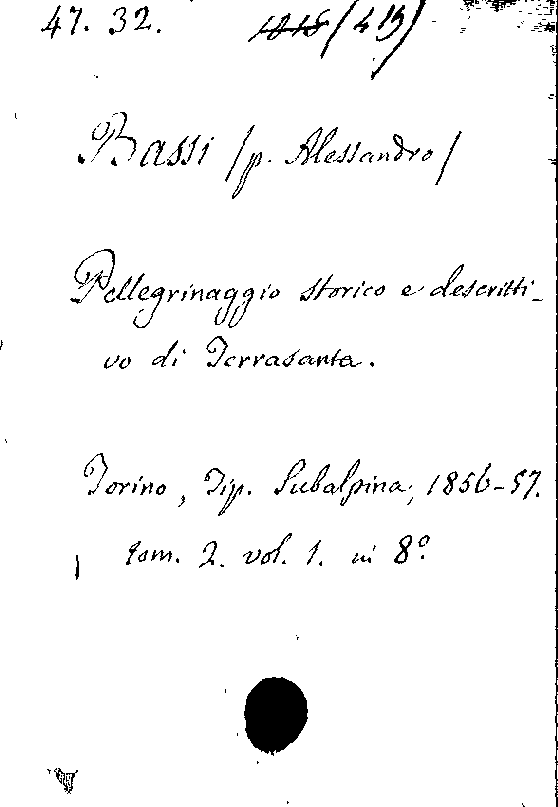 47. 32.
Bassi (p. Alessandro)
Pellegrinaggio storico e descritti-
vo di Terrasanta.
Torino, Tip. Subalpina, 1856-57.
tom. 2. vol. 1. in 8º.